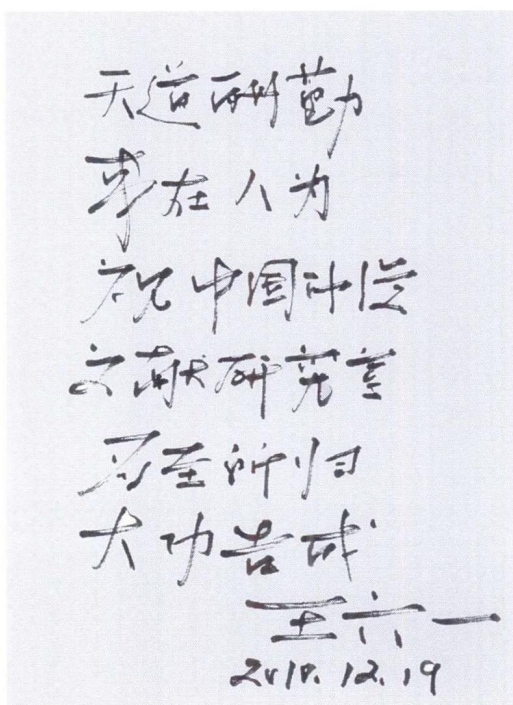 天道酬勤
事在人为
祝中国小说
文献研究室
实至所归
大功告成
王六一
2010.12.19